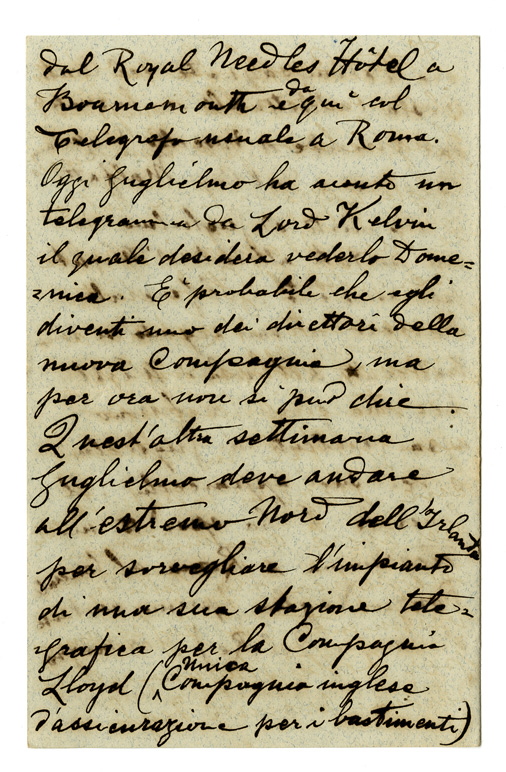 dal Royal Needles Hôtel a
Bournemouth e da qui col
Telegrafo usuale a Roma.
Oggi Guglielmo ha avuto un
telegramma da Lord Kelvin
il quale desidera vederlo Dome=
=nica. E' probabile che egli
diventi uno dei direttori della
nuova Compagnia, ma
per ora non si può dire.
Quest'altra settimana
Guglielmo deve andare
all'estremo Nord dell'Irlanda
per sorvegliare l'impianto
di una sua stazione tele=
grafica per la Compagnia
Lloyd (Unica Compagnia inglese
d'assicurazione per i bastimenti)